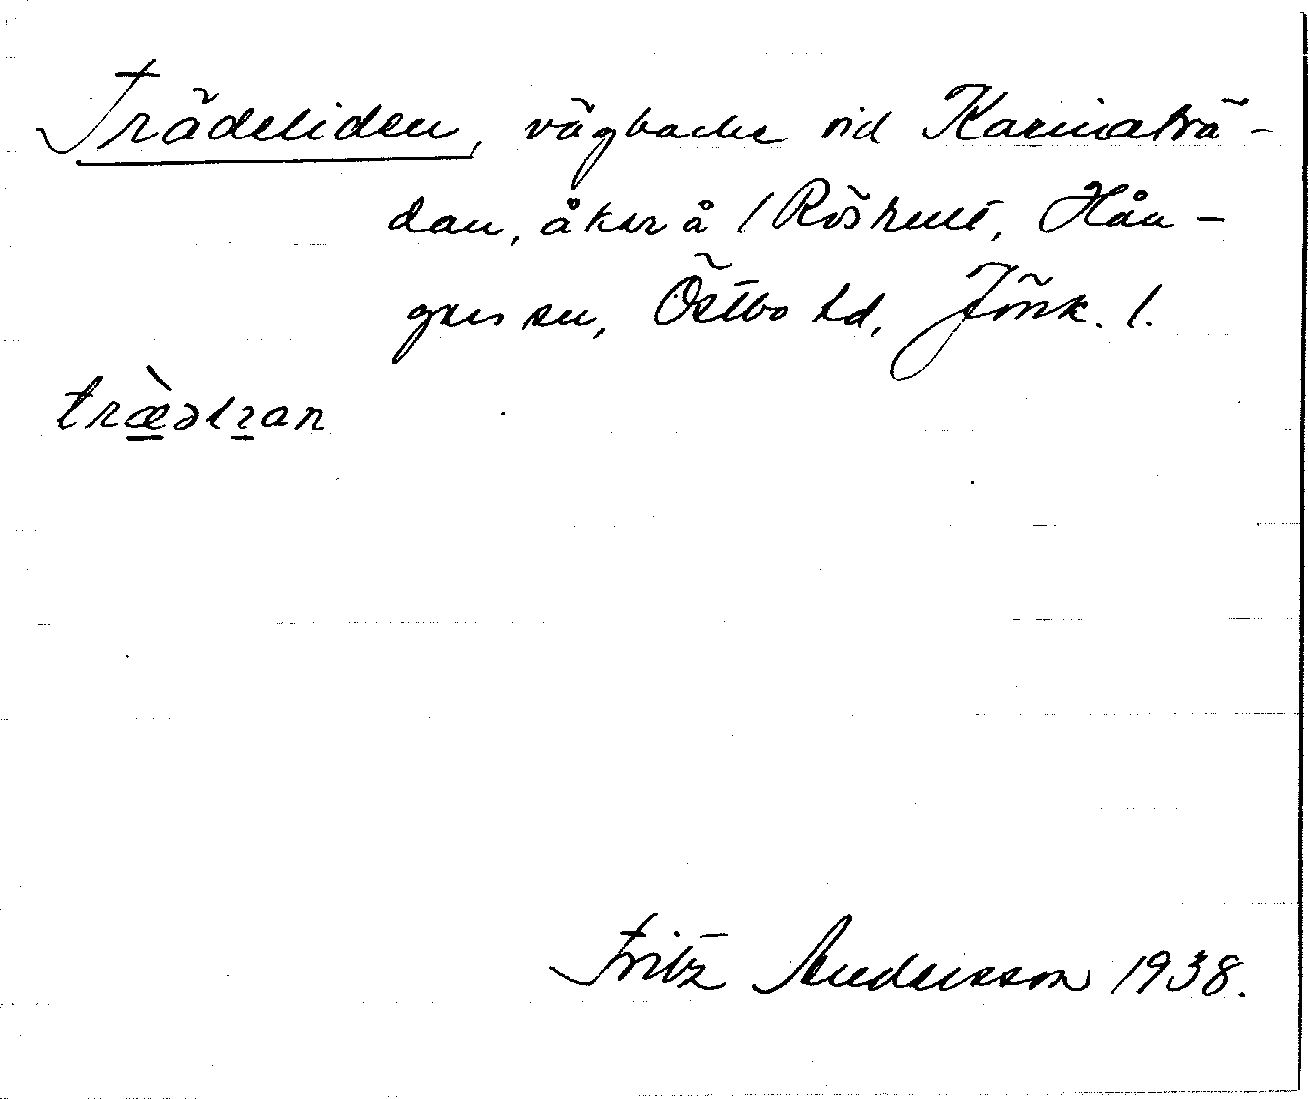 Trädeliden, vägbacke vid Karinaträ-
dan, åker å /Röshult, Hån-
ger sn, Östbo hd, Jönk. l.
træ̀əlɿan
Fritz Andersson 1938.